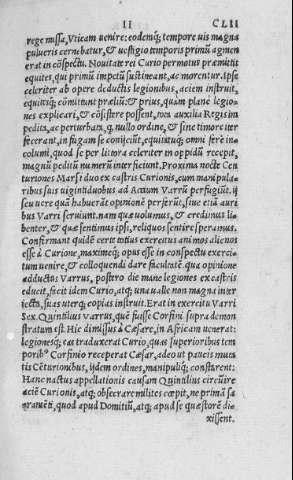 II CLII
rege missa, Vticam uenire: eodemq; tempore uis magna
pulueris cernebatur, & uestigio temporis primũ agmen
erat in cõspectu. Nouitate rei Curio permotus præmittit
equites, qui primũ impetũ sustineant, ac morentur. Ipse
celeriter ab opere deductis legionibus, aciem instruit,
equitesq; cõmittunt præliũ: & prius, quàm plane legio=
nes explicari, & cõsistere possent, tota auxilia Regis im
pedita, ac perturbata, q, nullo ordine, & sine timore iter
fecerant, in fugam se conijciũt, equitatuq; omni ferè in=
columi, quod se per littora celeriter in oppidũ recepit,
magnũ peditũ numerũ interficiunt. Proxima nocte Cen
turiones Marsi duo ex castris Curionis, cum manipula=
ribus suis uigintiduobus ad Actium Varrũ perfugiũt. ij
seu uere quã habuerãt opinionẽ perferũt, siue etiã auri
bus Varri seruiunt. nam quæ uolumus, & credimus li=
benter, & quæ sentimus ipsi, reliquos sentire speramus.
Confirmant quidẽ certe totius exercitus animos alienos
esse à Curione, maximeq; opus esse in conspectu exerci=
tum uenire, & colloquendi dare facultatẽ. qua opinione
adductus Varrus, postero die mane legiones ex castris
educit, fecit idem Curio, atq; una ualle non magna inter
iecta, suas uterq; copias instruit. Erat in exercitu Varri
Sex. Quintilius Varrus, quẽ fuisse Corfini supra demon
stratum est. Hic dimissus à Cæsare, in Africam uenerat:
legionesq; eas traduxerat Curio, quas superioribus tem
poribꝰ Corfinio receperat Cæsar, adeo ut paucis muta
tis Cẽturionibus, ijdem ordines, manipuliq; constarent:
Hanc nactus appellationis causam Quintilius circũire
aciẽ Curionis, atq; obsecrare milites cœpit, ne primã sa
cramẽti, quod apud Domitiũ, atq; apud se quæstorẽ di=
xissent.